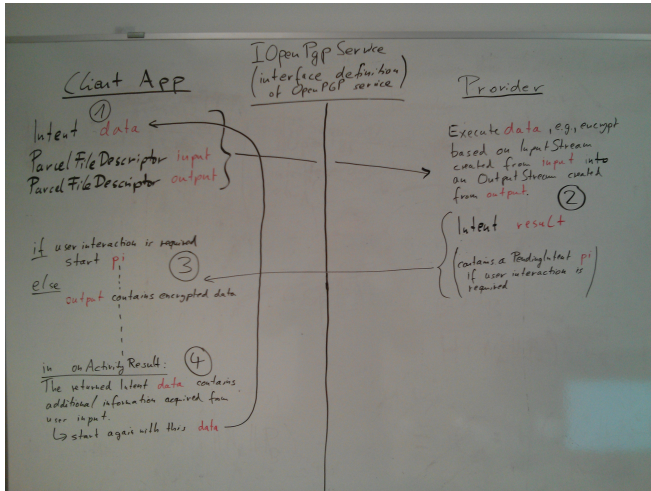 Client App
①
Intent data
ParcelFileDescriptor input
ParcelFileDescriptor output
if user interaction is required
start pi
③
else
output contains encrypted data
in onActivityResult:
④
The returned Intent data contains
additional information acquired from
user input.
↳ start again with this data
IOpenPgpService
(interface definition
of OpenPGP service)
Provider
Execute data, e.g., encrypt
based on InputStream
created from input into
an OutputStream created
from output.
②
Intent result
(contains a PendingIntent pi
if user interaction is
required)